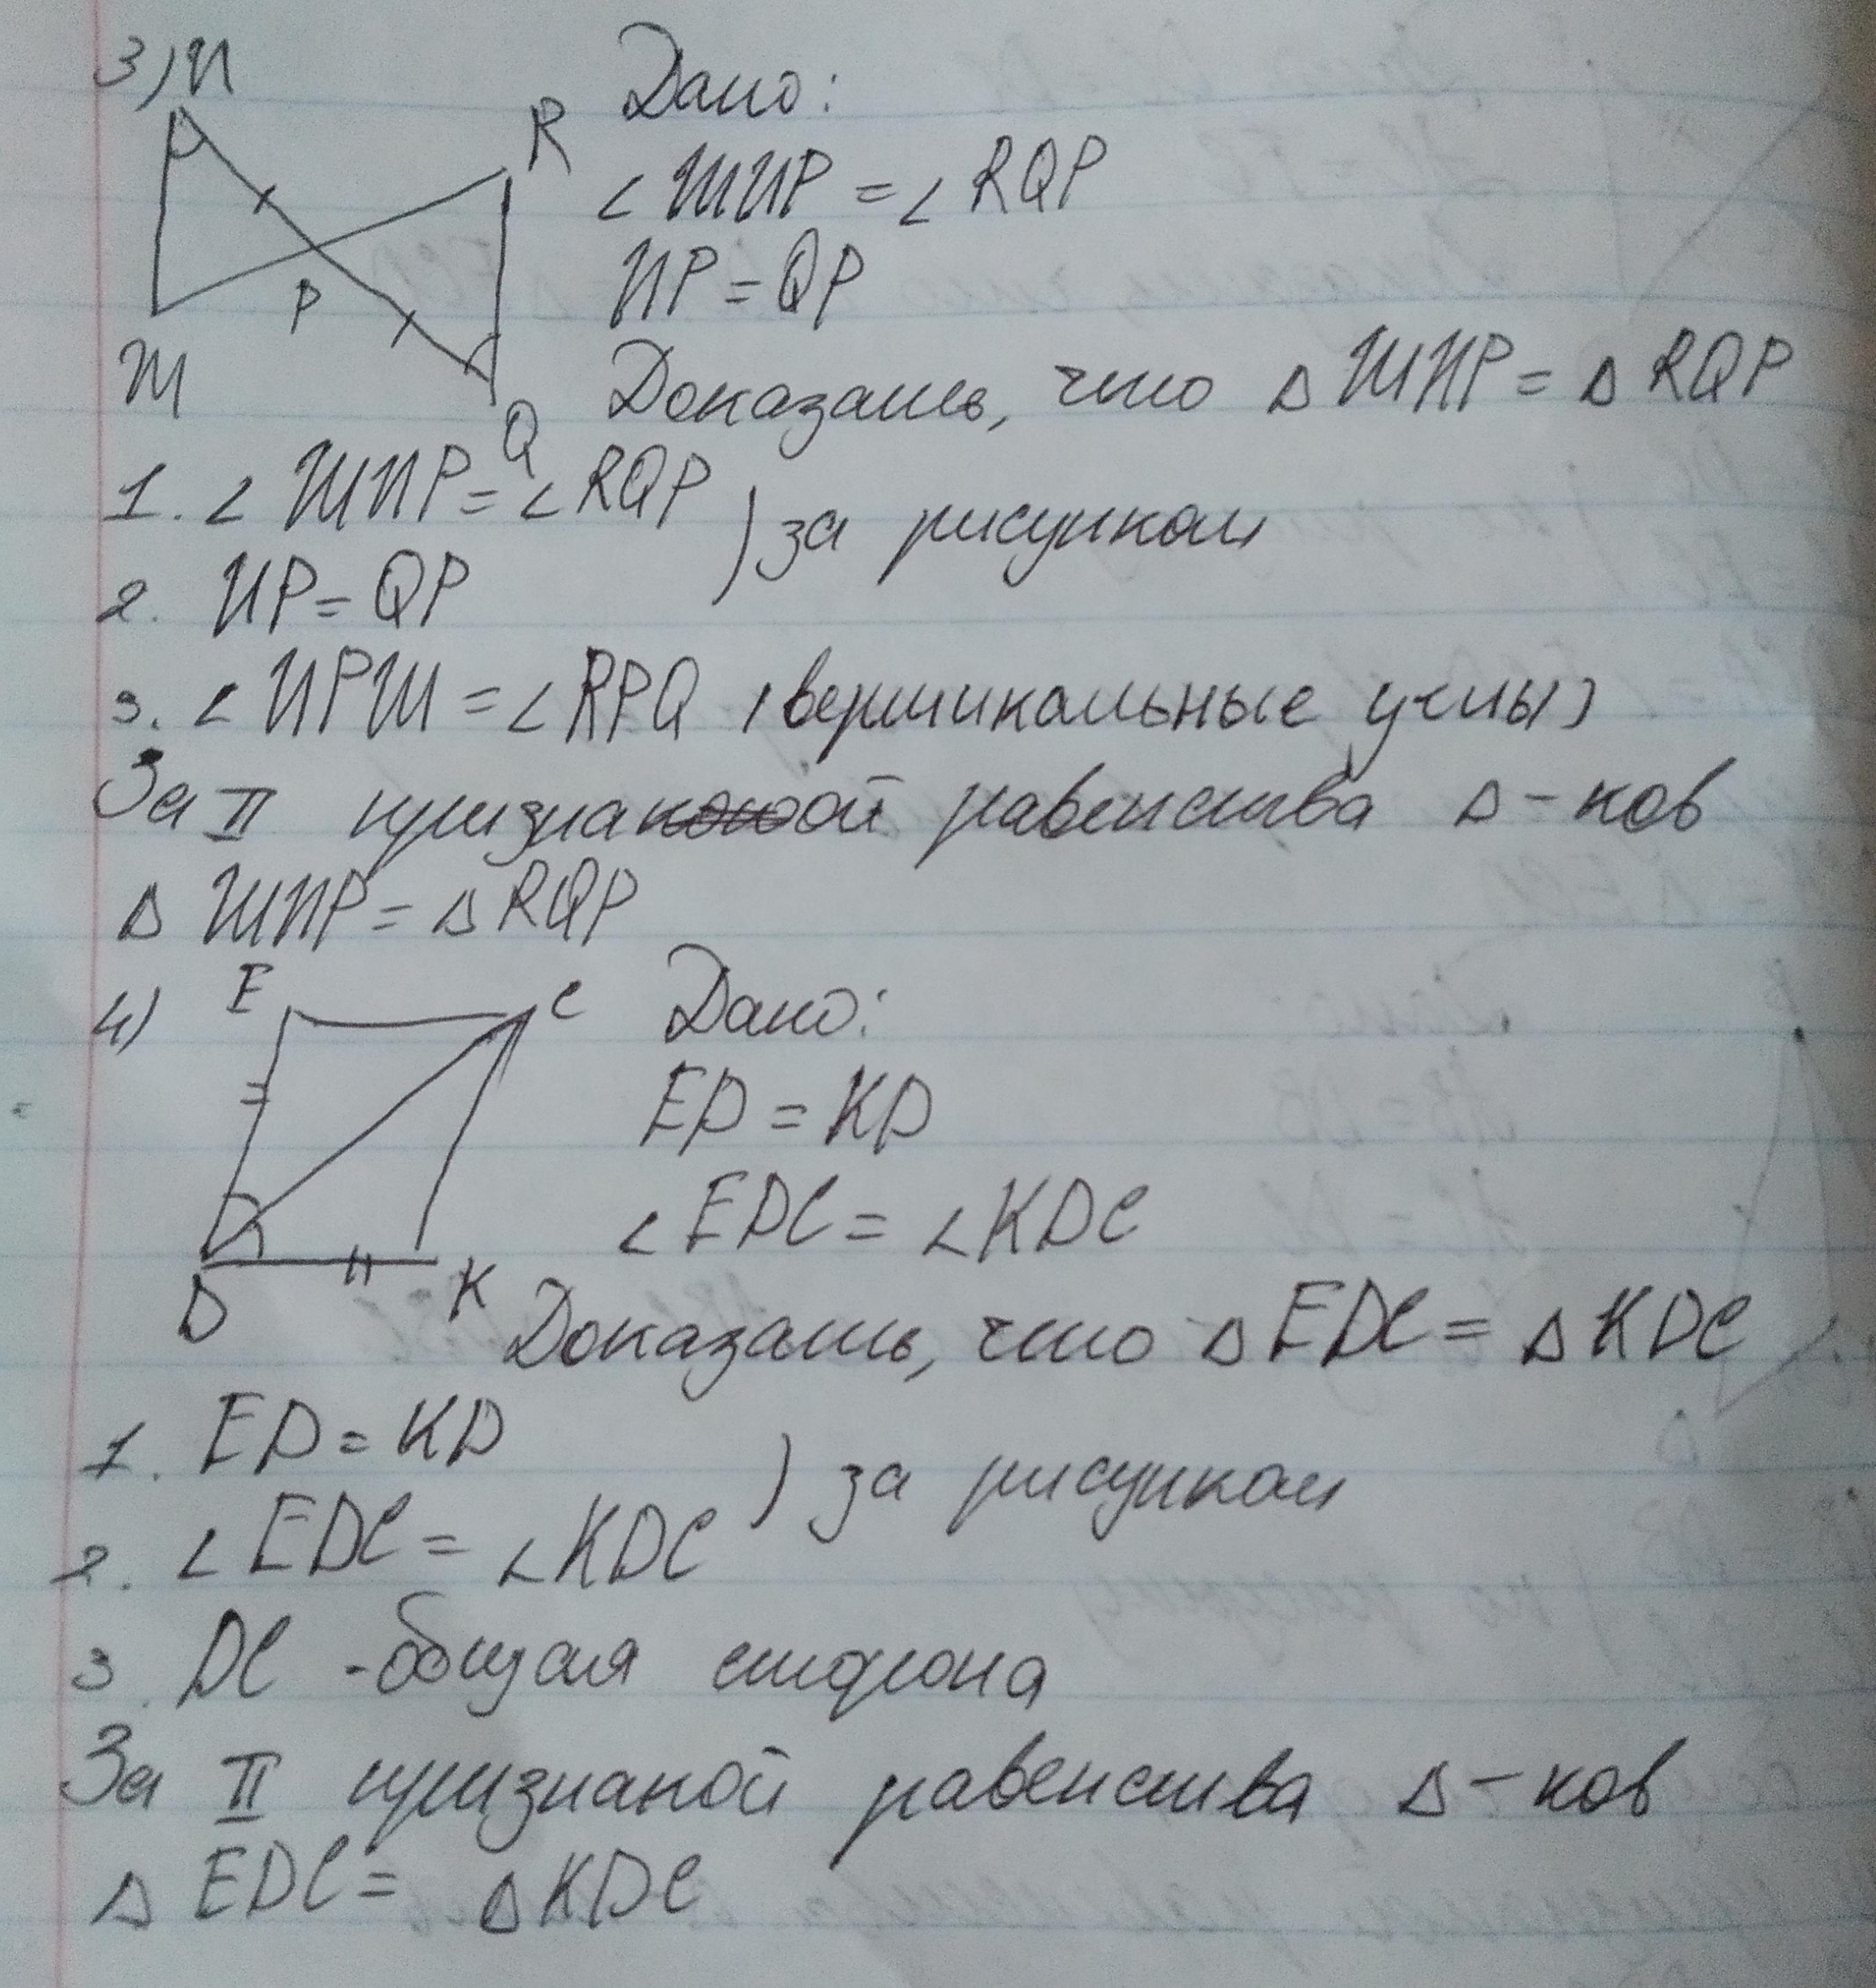 3) N
R
P
M
Q
Дано:
∠ MNP = ∠ RQP
NP = QP
Доказать, что Δ MNP = Δ RQP
1. ∠ MNP = ∠ RQP
) за рисунком
2. NP = QP
3. ∠ NPM = ∠ RPQ (вертикальные углы)
За II признакой равенства Δ-ков
Δ MNP = Δ RQP
4) E
C
D
K
Дано:
ED = KD
∠ EDC = ∠ KDC
Доказать, что Δ EDC = Δ KDC
1. ED = KD
) за рисунком
2. ∠ EDC = ∠ KDC
3. DC - общая сторона
За II призпакой равенства Δ-ков
Δ EDC = Δ KDC